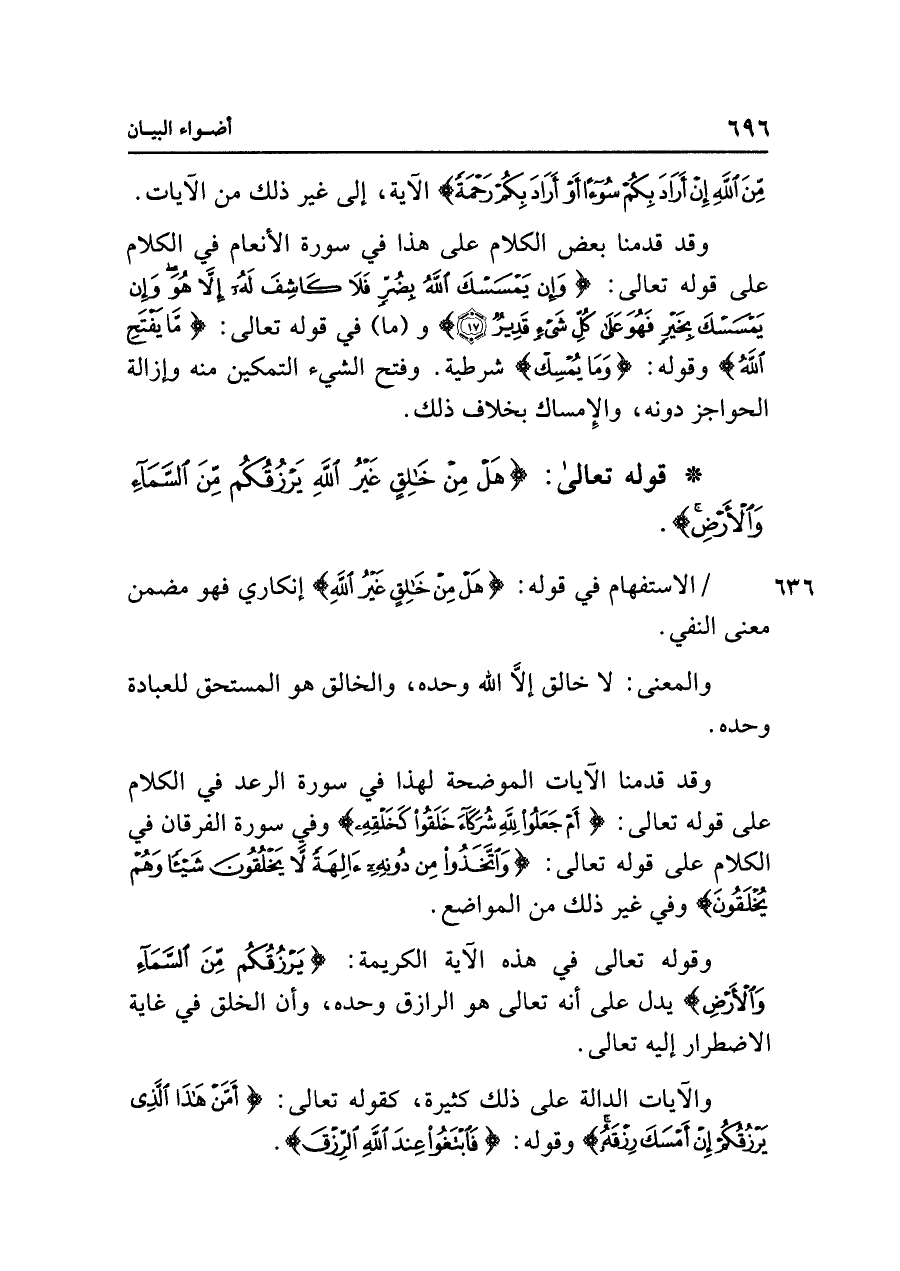 ٦٩٦ أضـواء البيـان
مِّنَ ٱللَّهِ إِنْ أَرَادَ بِكُمْ سُوٓءًا أَوْ أَرَادَ بِكُمْ رَحْمَةً﴾ الآية، إلى غير ذلك من الآيات.
وقد قدمنا بعض الكلام على هذا في سورة الأنعام في الكلام
على قوله تعالى: ﴿وَإِن يَمْسَسْكَ ٱللَّهُ بِضُرٍّ فَلَا كَاشِفَ لَهُۥٓ إِلَّا هُوَۖ وَإِن
يَمْسَسْكَ بِخَيْرٍ فَهُوَ عَلَىٰ كُلِّ شَىْءٍ قَدِيرٌ ۝١٧﴾ و (ما) في قوله تعالى: ﴿مَّا يَفْتَحِ
ٱللَّهُ﴾ وقوله: ﴿وَمَا يُمْسِكْ﴾ شرطية. وفتح الشيء التمكين منه وإزالة
الحواجز دونه، والإِمساك بخلاف ذلك.
* قوله تعالىٰ: ﴿هَلْ مِنْ خَٰلِقٍ غَيْرُ ٱللَّهِ يَرْزُقُكُم مِّنَ ٱلسَّمَآءِ
وَٱلْأَرْضِۚ﴾.
٦٣٦ / الاستفهام في قوله: ﴿هَلْ مِنْ خَٰلِقٍ غَيْرُ ٱللَّهِ﴾ إنكاري فهو مضمن
معنى النفي.
والمعنى: لا خالق إلاَّ الله وحده، والخالق هو المستحق للعبادة
وحده.
وقد قدمنا الآيات الموضحة لهذا في سورة الرعد في الكلام
على قوله تعالى: ﴿أَمْ جَعَلُوا۟ لِلَّهِ شُرَكَآءَ خَلَقُوا۟ كَخَلْقِهِۦ﴾ وفي سورة الفرقان في
الكلام على قوله تعالى: ﴿وَٱتَّخَذُوا۟ مِن دُونِهِۦٓ ءَالِهَةً لَّا يَخْلُقُونَ شَيْـًٔا وَهُمْ
يُخْلَقُونَ﴾ وفي غير ذلك من المواضع.
وقوله تعالى في هذه الآية الكريمة: ﴿يَرْزُقُكُم مِّنَ ٱلسَّمَآءِ
وَٱلْأَرْضِ﴾ يدل على أنه تعالى هو الرازق وحده، وأن الخلق في غاية
الاضطرار إليه تعالى.
والآيات الدالة على ذلك كثيرة، كقوله تعالى: ﴿أَمَّنْ هَٰذَا ٱلَّذِى
يَرْزُقُكُمْ إِنْ أَمْسَكَ رِزْقَهُۥۚ﴾ وقوله: ﴿فَٱبْتَغُوا۟ عِندَ ٱللَّهِ ٱلرِّزْقَ﴾.